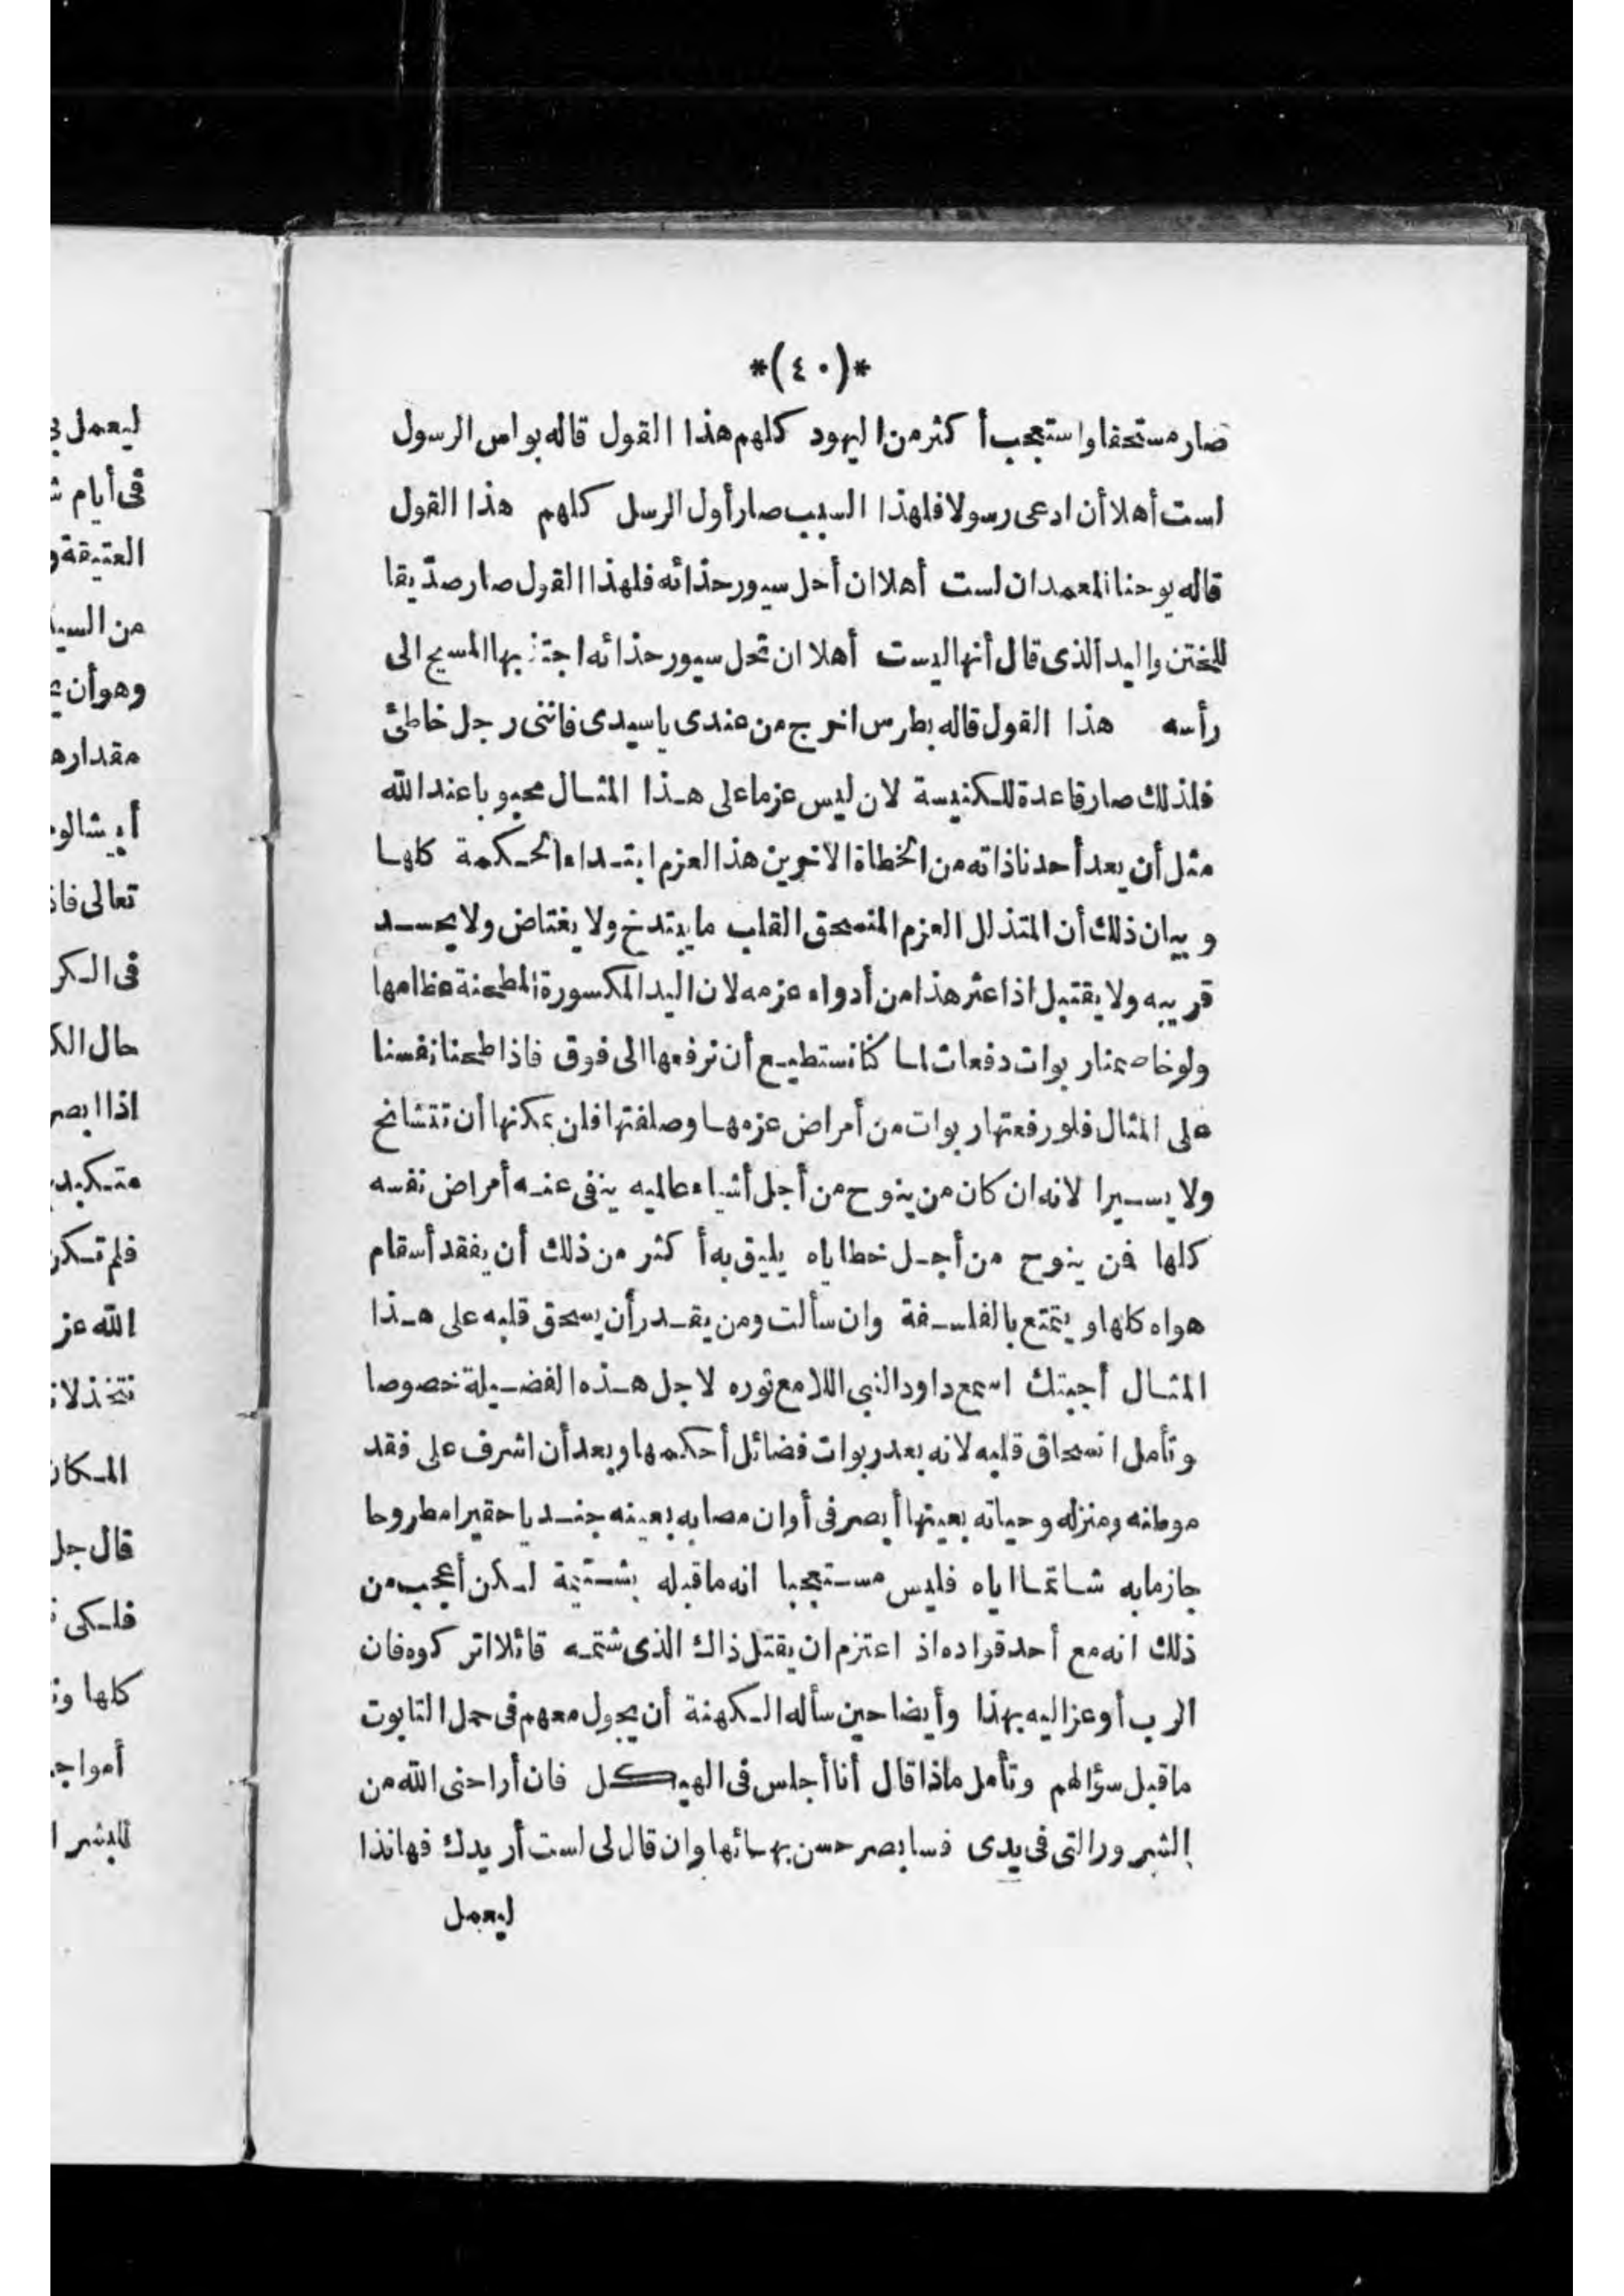 *(٤٠)*
صار مستحفا واستعجب أكثر من اليهود كلهم هذا القول قاله بولس الرسول
لست أهلا أن ادعى رسولا فلهذا السبب صار أول الرسل كلهم هذا القول
قاله يوحنا المعمدان لست أهلا ان أحل سيور حذائه فلهذا القول صار صدّيقا
للختن واليد الذى قال أنها ليست أهلا ان تحل سيور حذائه اجتذبها المسيح الى
رأسه هذا القول قاله بطرس اخرج من عندى ياسيدى فاننى رجل خاطئ
فلذلك صار قاعدة للكنيسة لان ليس عزما على هذا المثال محبوبا عند الله
مثل أن يعد أحدنا ذاته من الخطاة الاخرين هذا العزم ابتداء الحكمة كلها
وبيان ذلك أن المتذلل العزم المنسحق القلب ما يبتدخ ولا يغتاض ولا يحسد
قريبه ولا يقتبل اذا عثر هذا من أدواء عزمه لان اليد المكسورة المطحنة عظامها
ولو خاصمنا ربوات دفعات لما كنا نستطيع أن نرفعها الى فوق فاذا طحنا نفسنا
على المثال فلو رفعتها ربوات من أمراض عزمها وصلفتها فلن يمكنها أن تتشانخ
ولا يسيرا لانه ان كان من ينوح من أجل أشياء عالميه ينفى عنه أمراض نفسه
كلها فمن ينوح من أجل خطاياه يليق به أكثر من ذلك أن يفقد أسقام
هواه كلها ويتمتع بالفلسفة وان سألت ومن يقدر أن يسحق قلبه على هذا
المثال أجبتك اسمع داود النبى اللامع نوره لاجل هذه الفضيلة خصوصا
وتأمل انسحاق قلبه لانه بعد ربوات فضائل أحكمها وبعد أن اشرف على فقد
موطنه ومنزله وحياته بعينها أبصر فى أوان مصابه بعينه جنديا حقيرا مطروحا
جازما به شاتما اياه فليس مستعجبا انه ما قبله بشتيمة لكن أعجب من
ذلك انه مع أحد قواده اذ اعتزم ان يقتل ذاك الذى شتمه قائلا اتركوه فان
الرب أوعز اليه بهذا وأيضا حين سأله الكهنة أن يجول معهم فى حمل التابوت
ما قبل سؤالهم وتأمل ماذا قال أنا أجلس فى الهيكل فان أراحنى الله من
الشرور التى فى يدى فسابصر حسن بهائها وان قال لى لست أريدك فهانذا
ليعمل
ليعمل
فى أيام
العتيقة
من السيد
وهو أن
مقدار
أبيشالو
تعالى
فى الكر
حال
اذا ابصر
متكبد
فلم تكن
الله عز
تتخذ
المكان
قال جل
فلكى
كلها
أمواج
للبشر